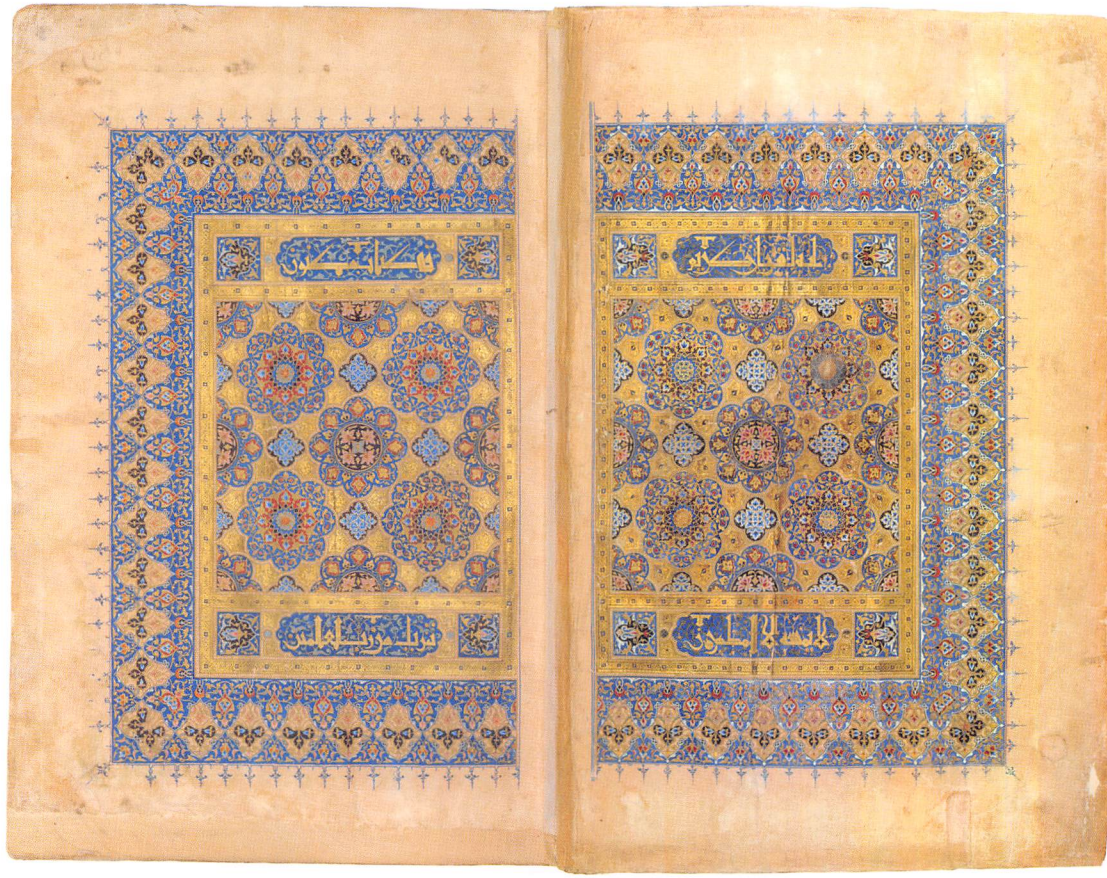 انه لقران كريم
في كتاب مكنون
لا يمسه الا المطهرون
تنزيل من رب العالمين